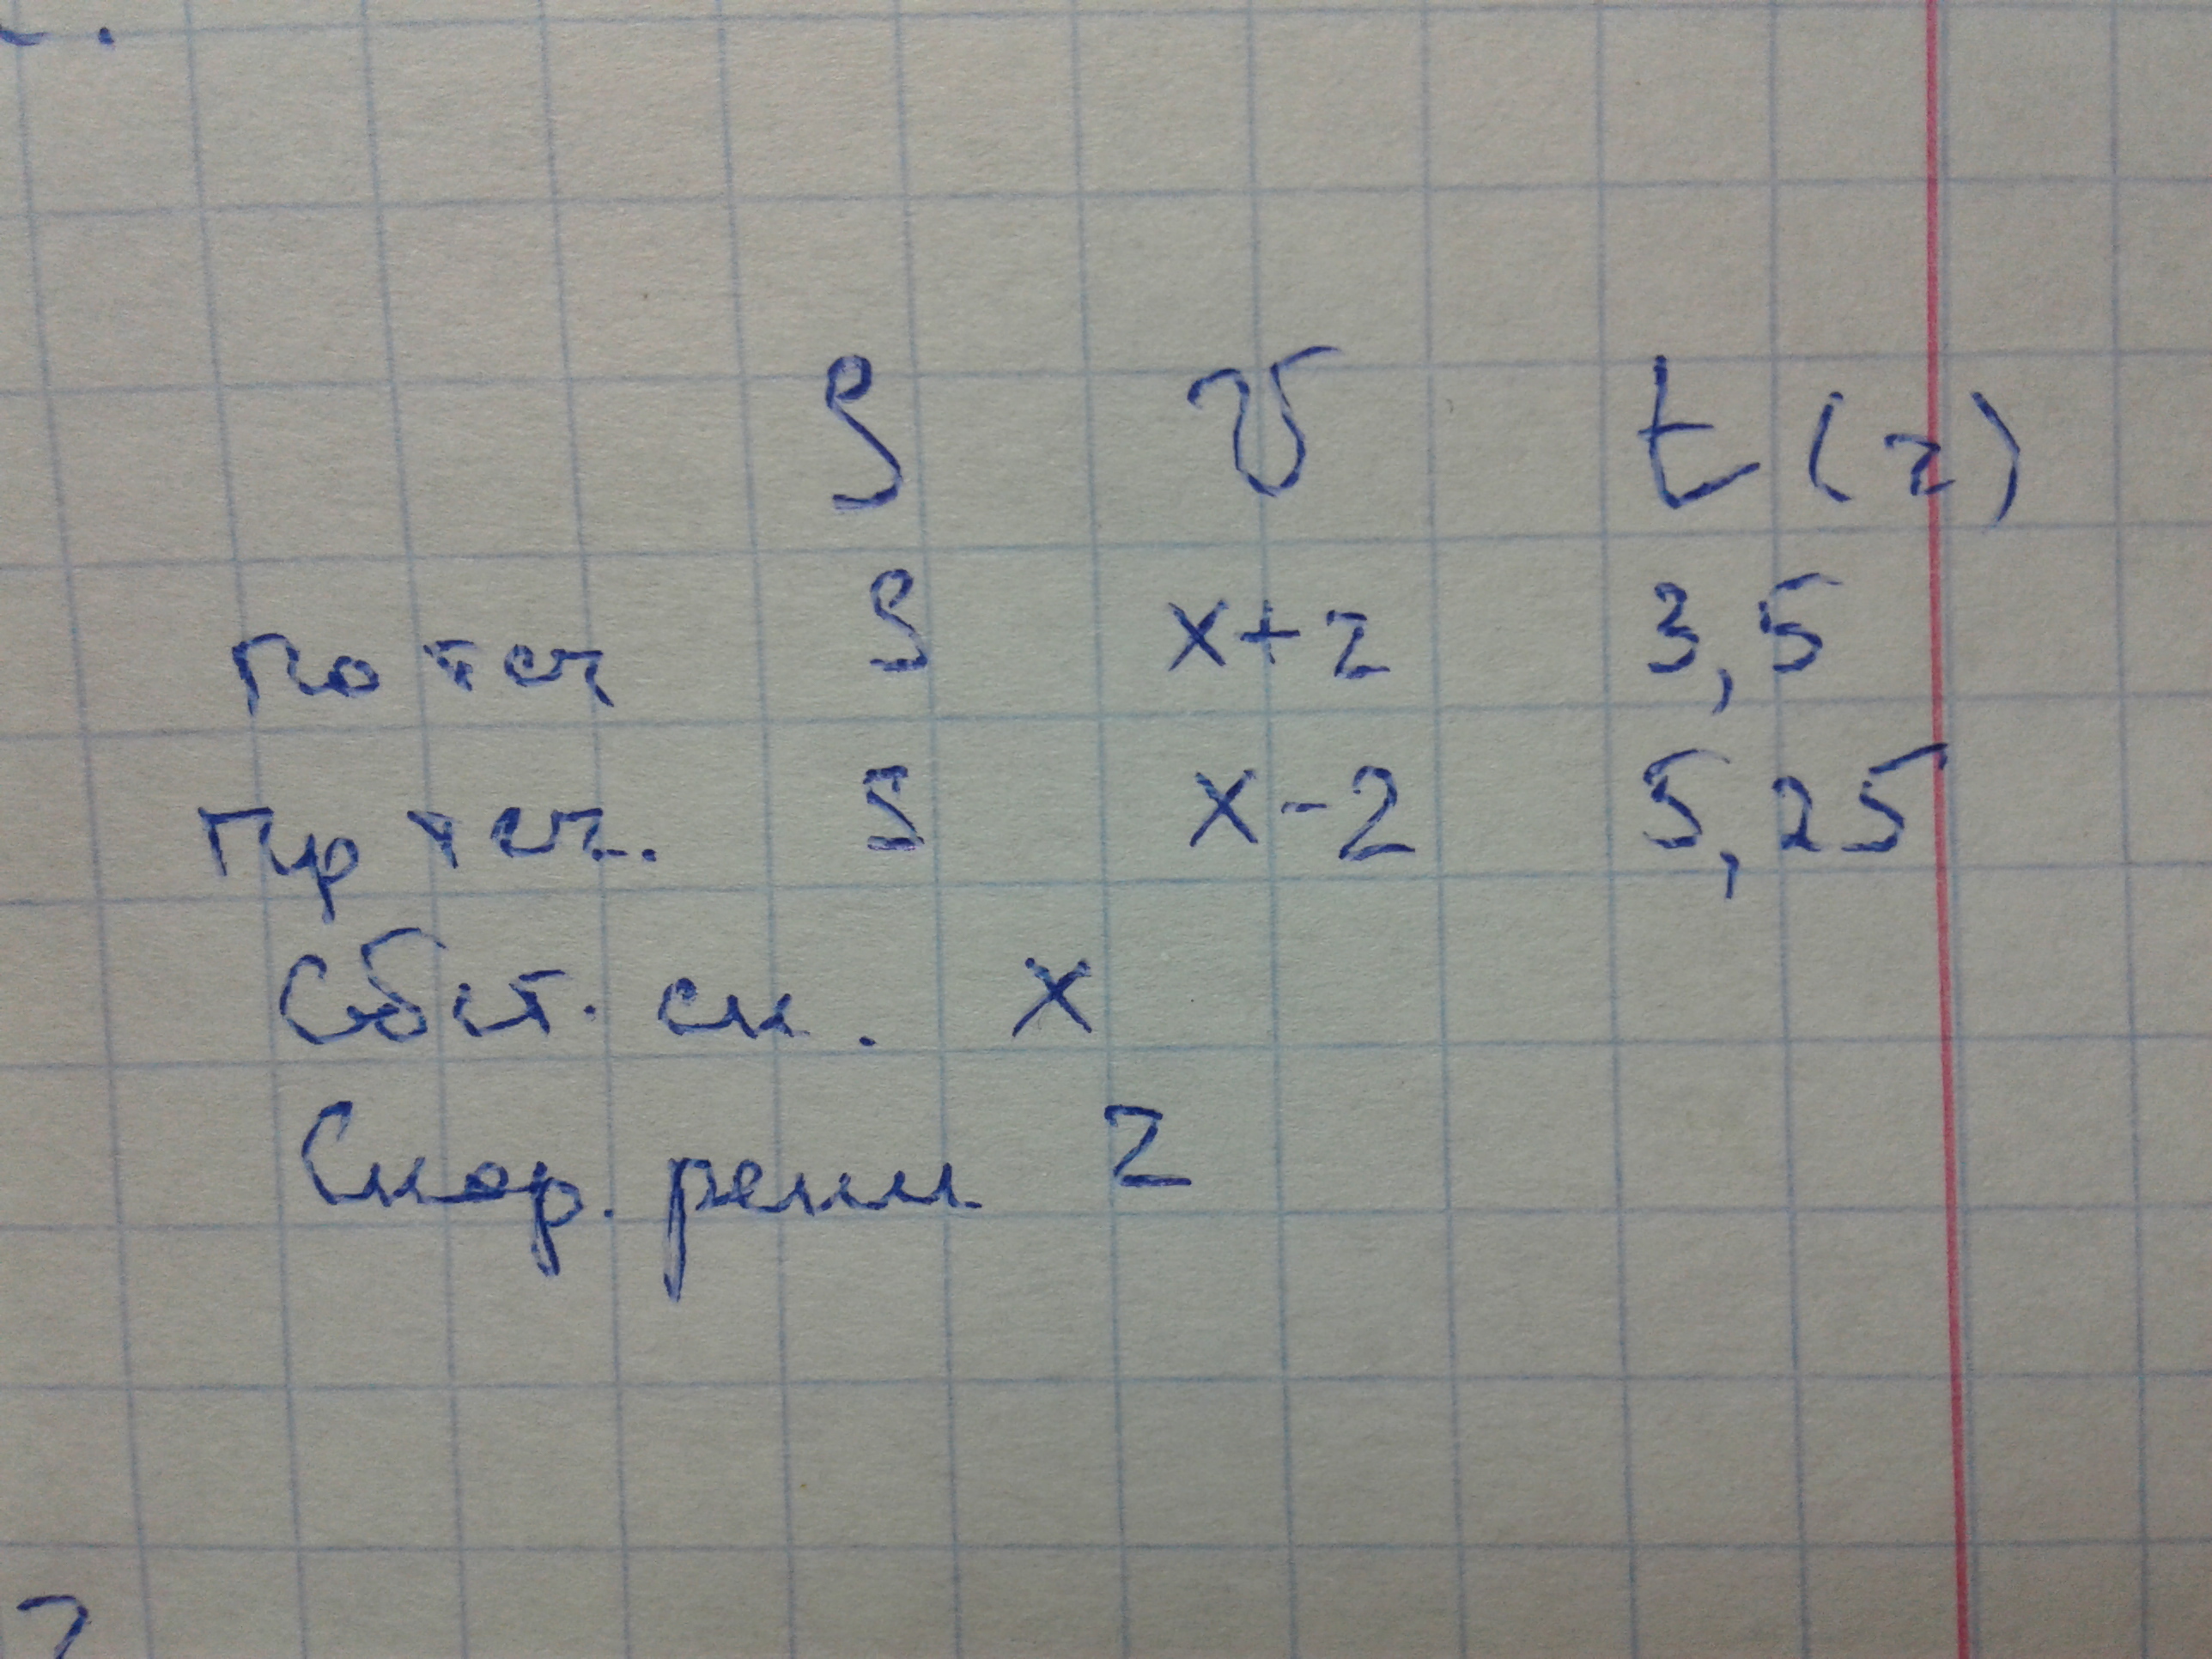 S v t (ч)
по теч S x+2 3,5
пр теч. S x-2 5,25
Сбст. ск. x
Скор. реки 2